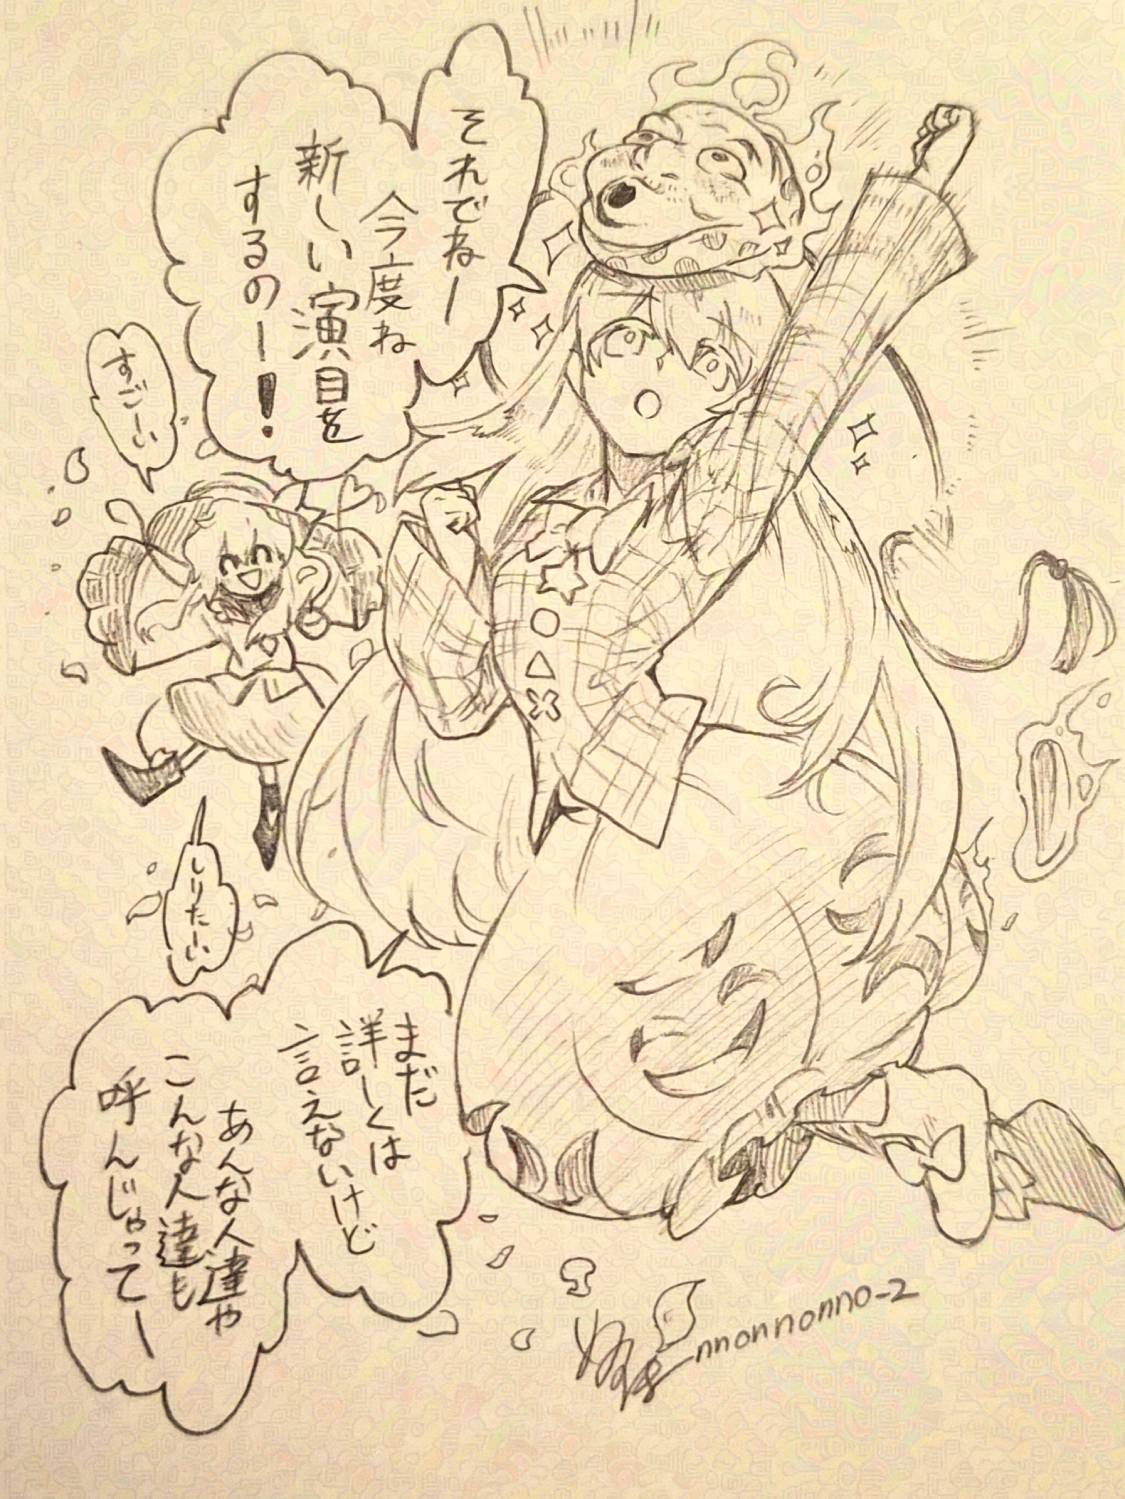 それでねー
今度ね
新しい演目を
するのー!
すごーい
しりたーい
まだ
詳しくは
言えないけど
あんな人達や
こんな人達も
呼んじゃってー
nnonnonno-2